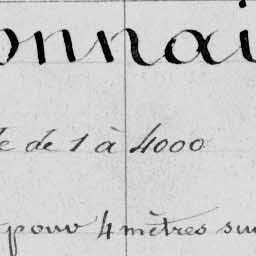 onnai
de 1 à 4000
pour 4 mètres sur